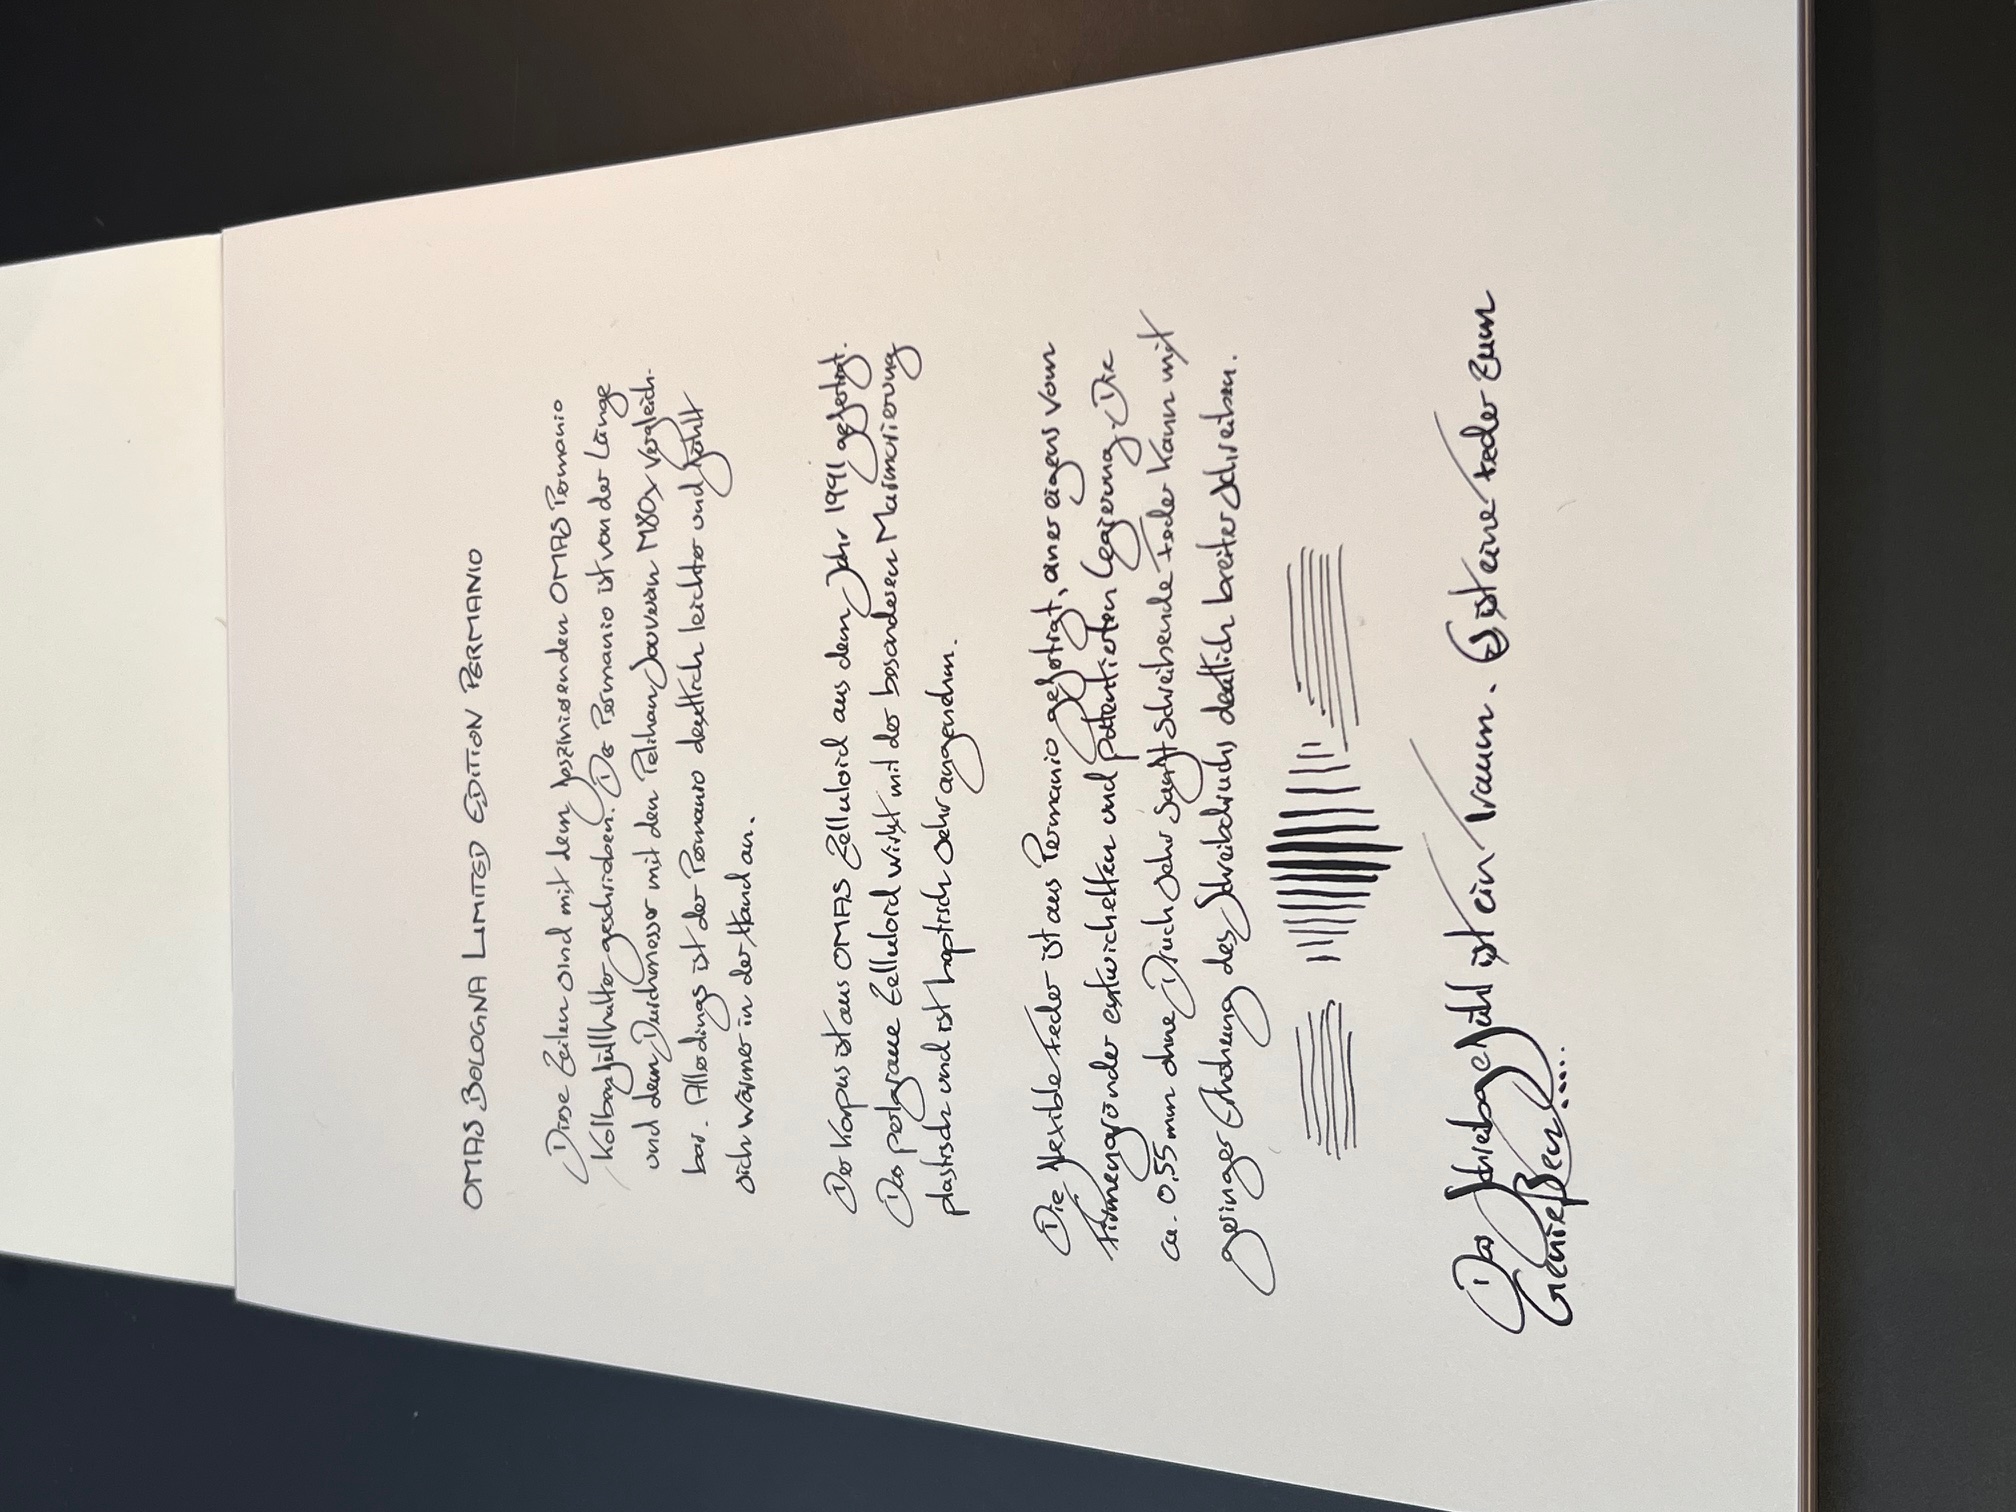 OMAS BOLOGNA LIMITED EDITION PERMANIO
Diese Zeilen sind mit dem faszinierenden OMAS Permanio
Kolbenfüllhalter geschrieben. Der Permanio ist von der Länge
und dem Durchmesser mit den Pelikan Souverän M80x vergleich-
bar. Allerdings ist der Permanio deutlich leichter und fühlt
sich wärmer in der Hand an.
Der Korpus ist aus OMAS Zelluloid aus dem Jahr 1991 gefertigt.
Das perlgraue Zelluloid wirkt mit der besonderen Marmorierung
plastisch und ist haptisch sehr angenehm.
Die flexible Feder ist aus Permanio gefertigt, einer eigens vom
Firmengründer entwickelten und patentierten Legierung. Die
ca. 0,55 mm ohne Druck sehr sanft schreibende Feder kann mit
geringer Erhöhung des Schreibdrucks deutlich breiter schreiben.
Das Schreibgefühl ist ein Traum. Es ist eine Feder zum
Genießen.....